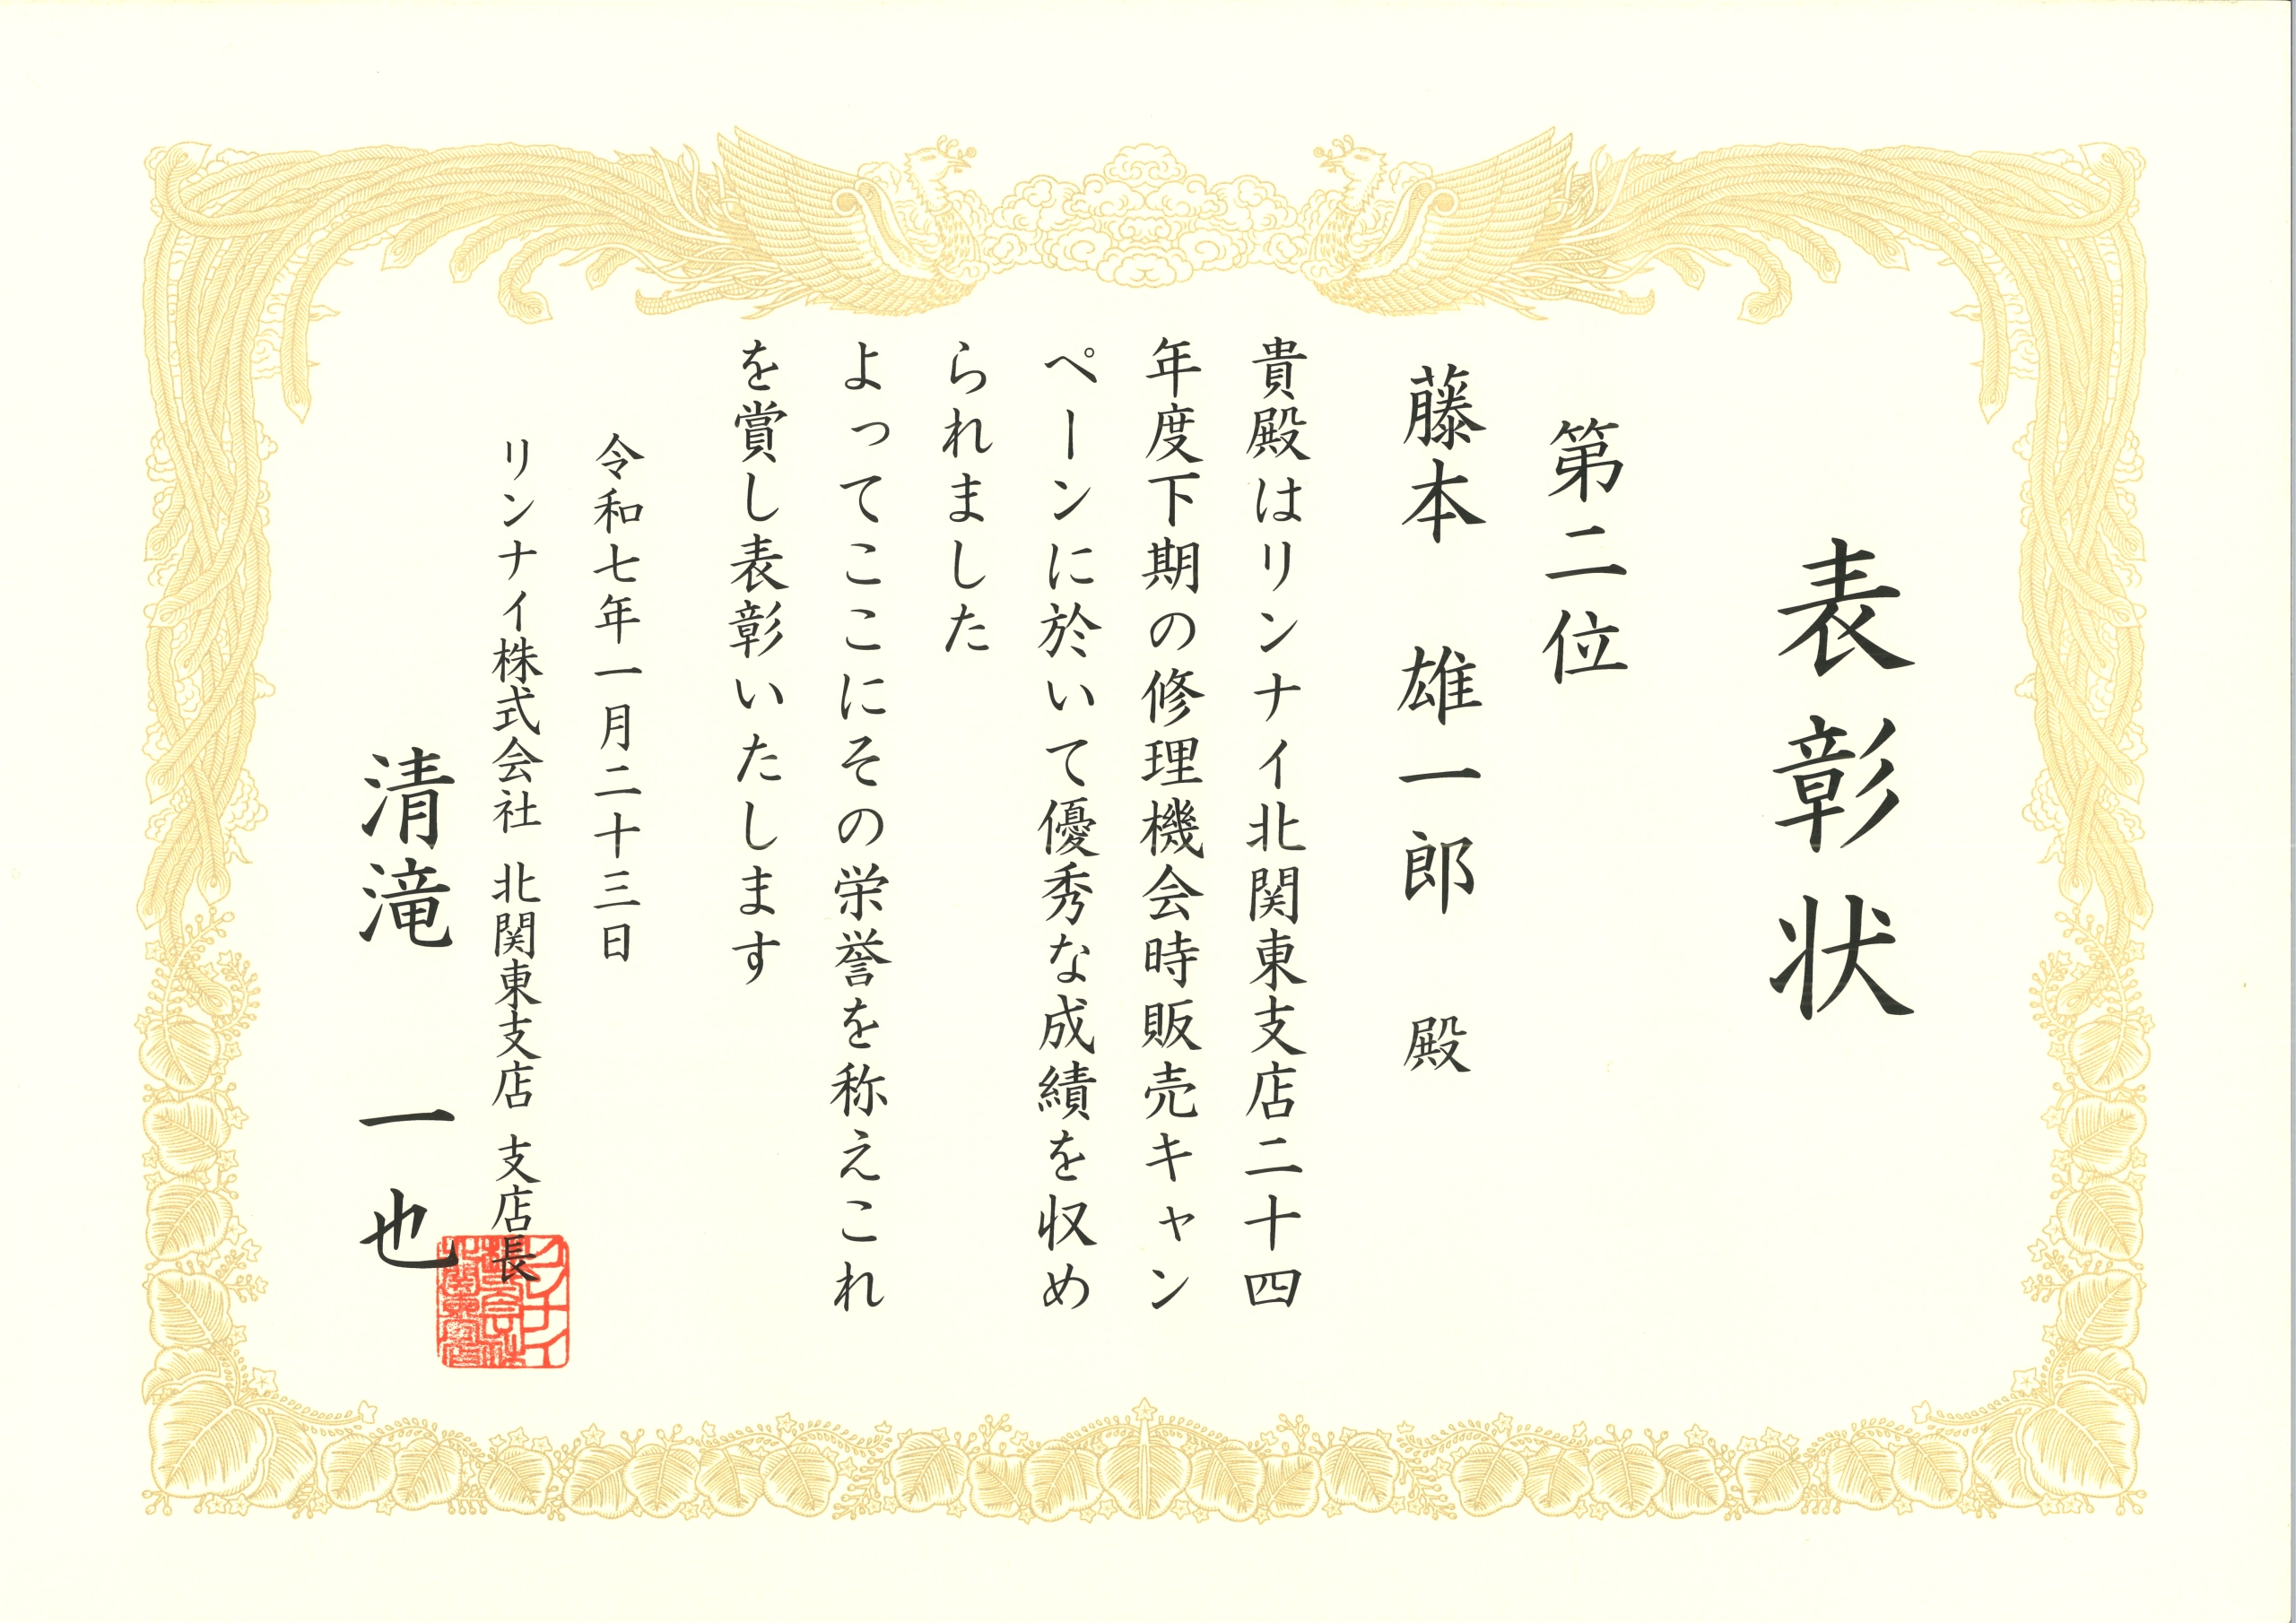 表彰状
第二位
藤本 雄一郎 殿
貴殿はリンナイ北関東支店二十四
年度下期の修理機会時販売キャン
ペーンに於いて優秀な成績を収め
られました
よってここにその栄誉を称えこれ
を賞し表彰いたします
令和七年一月二十三日
リンナイ株式会社 北関東支店 支店長
清滝 一也